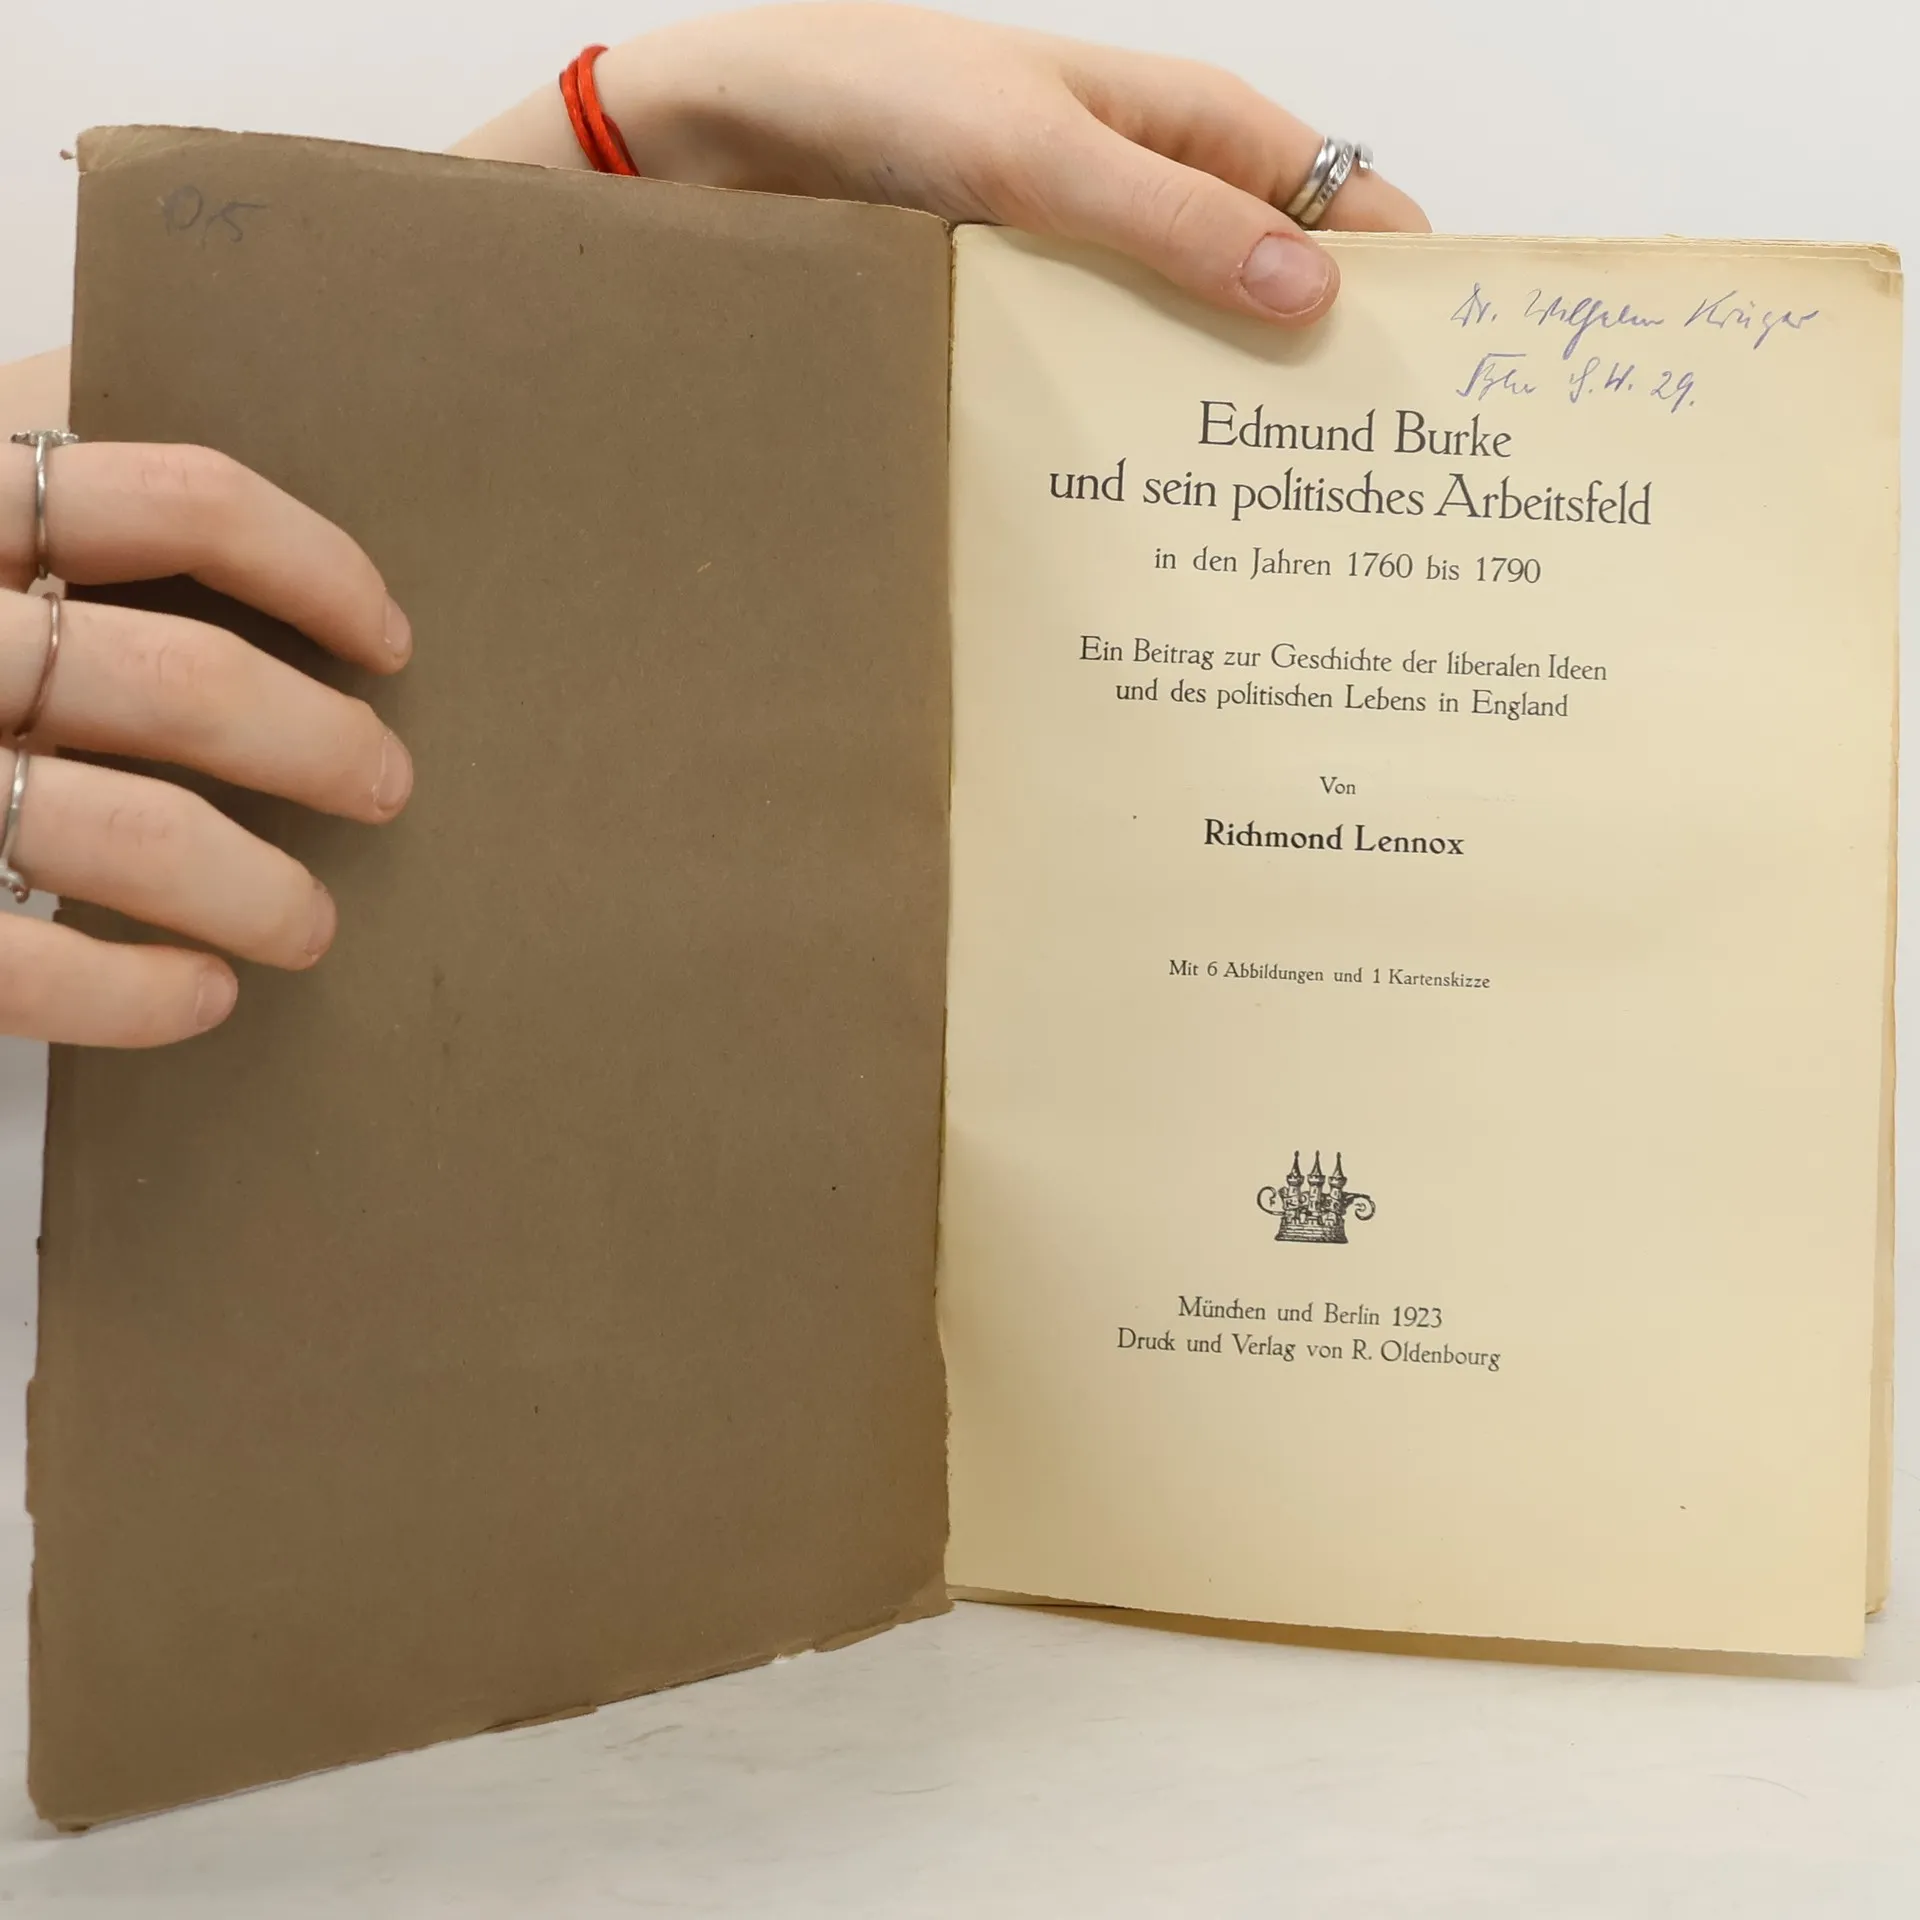 10,5
Dr. Wilhelm Krüger
S.W. 29.
Edmund Burke
und sein politisches Arbeitsfeld
in den Jahren 1760 bis 1790
Ein Beitrag zur Geschichte der liberalen Ideen
und des politischen Lebens in England
Von
Richmond Lennox
Mit 6 Abbildungen und 1 Kartenskizze
München und Berlin 1923
Druck und Verlag von R. Oldenbourg